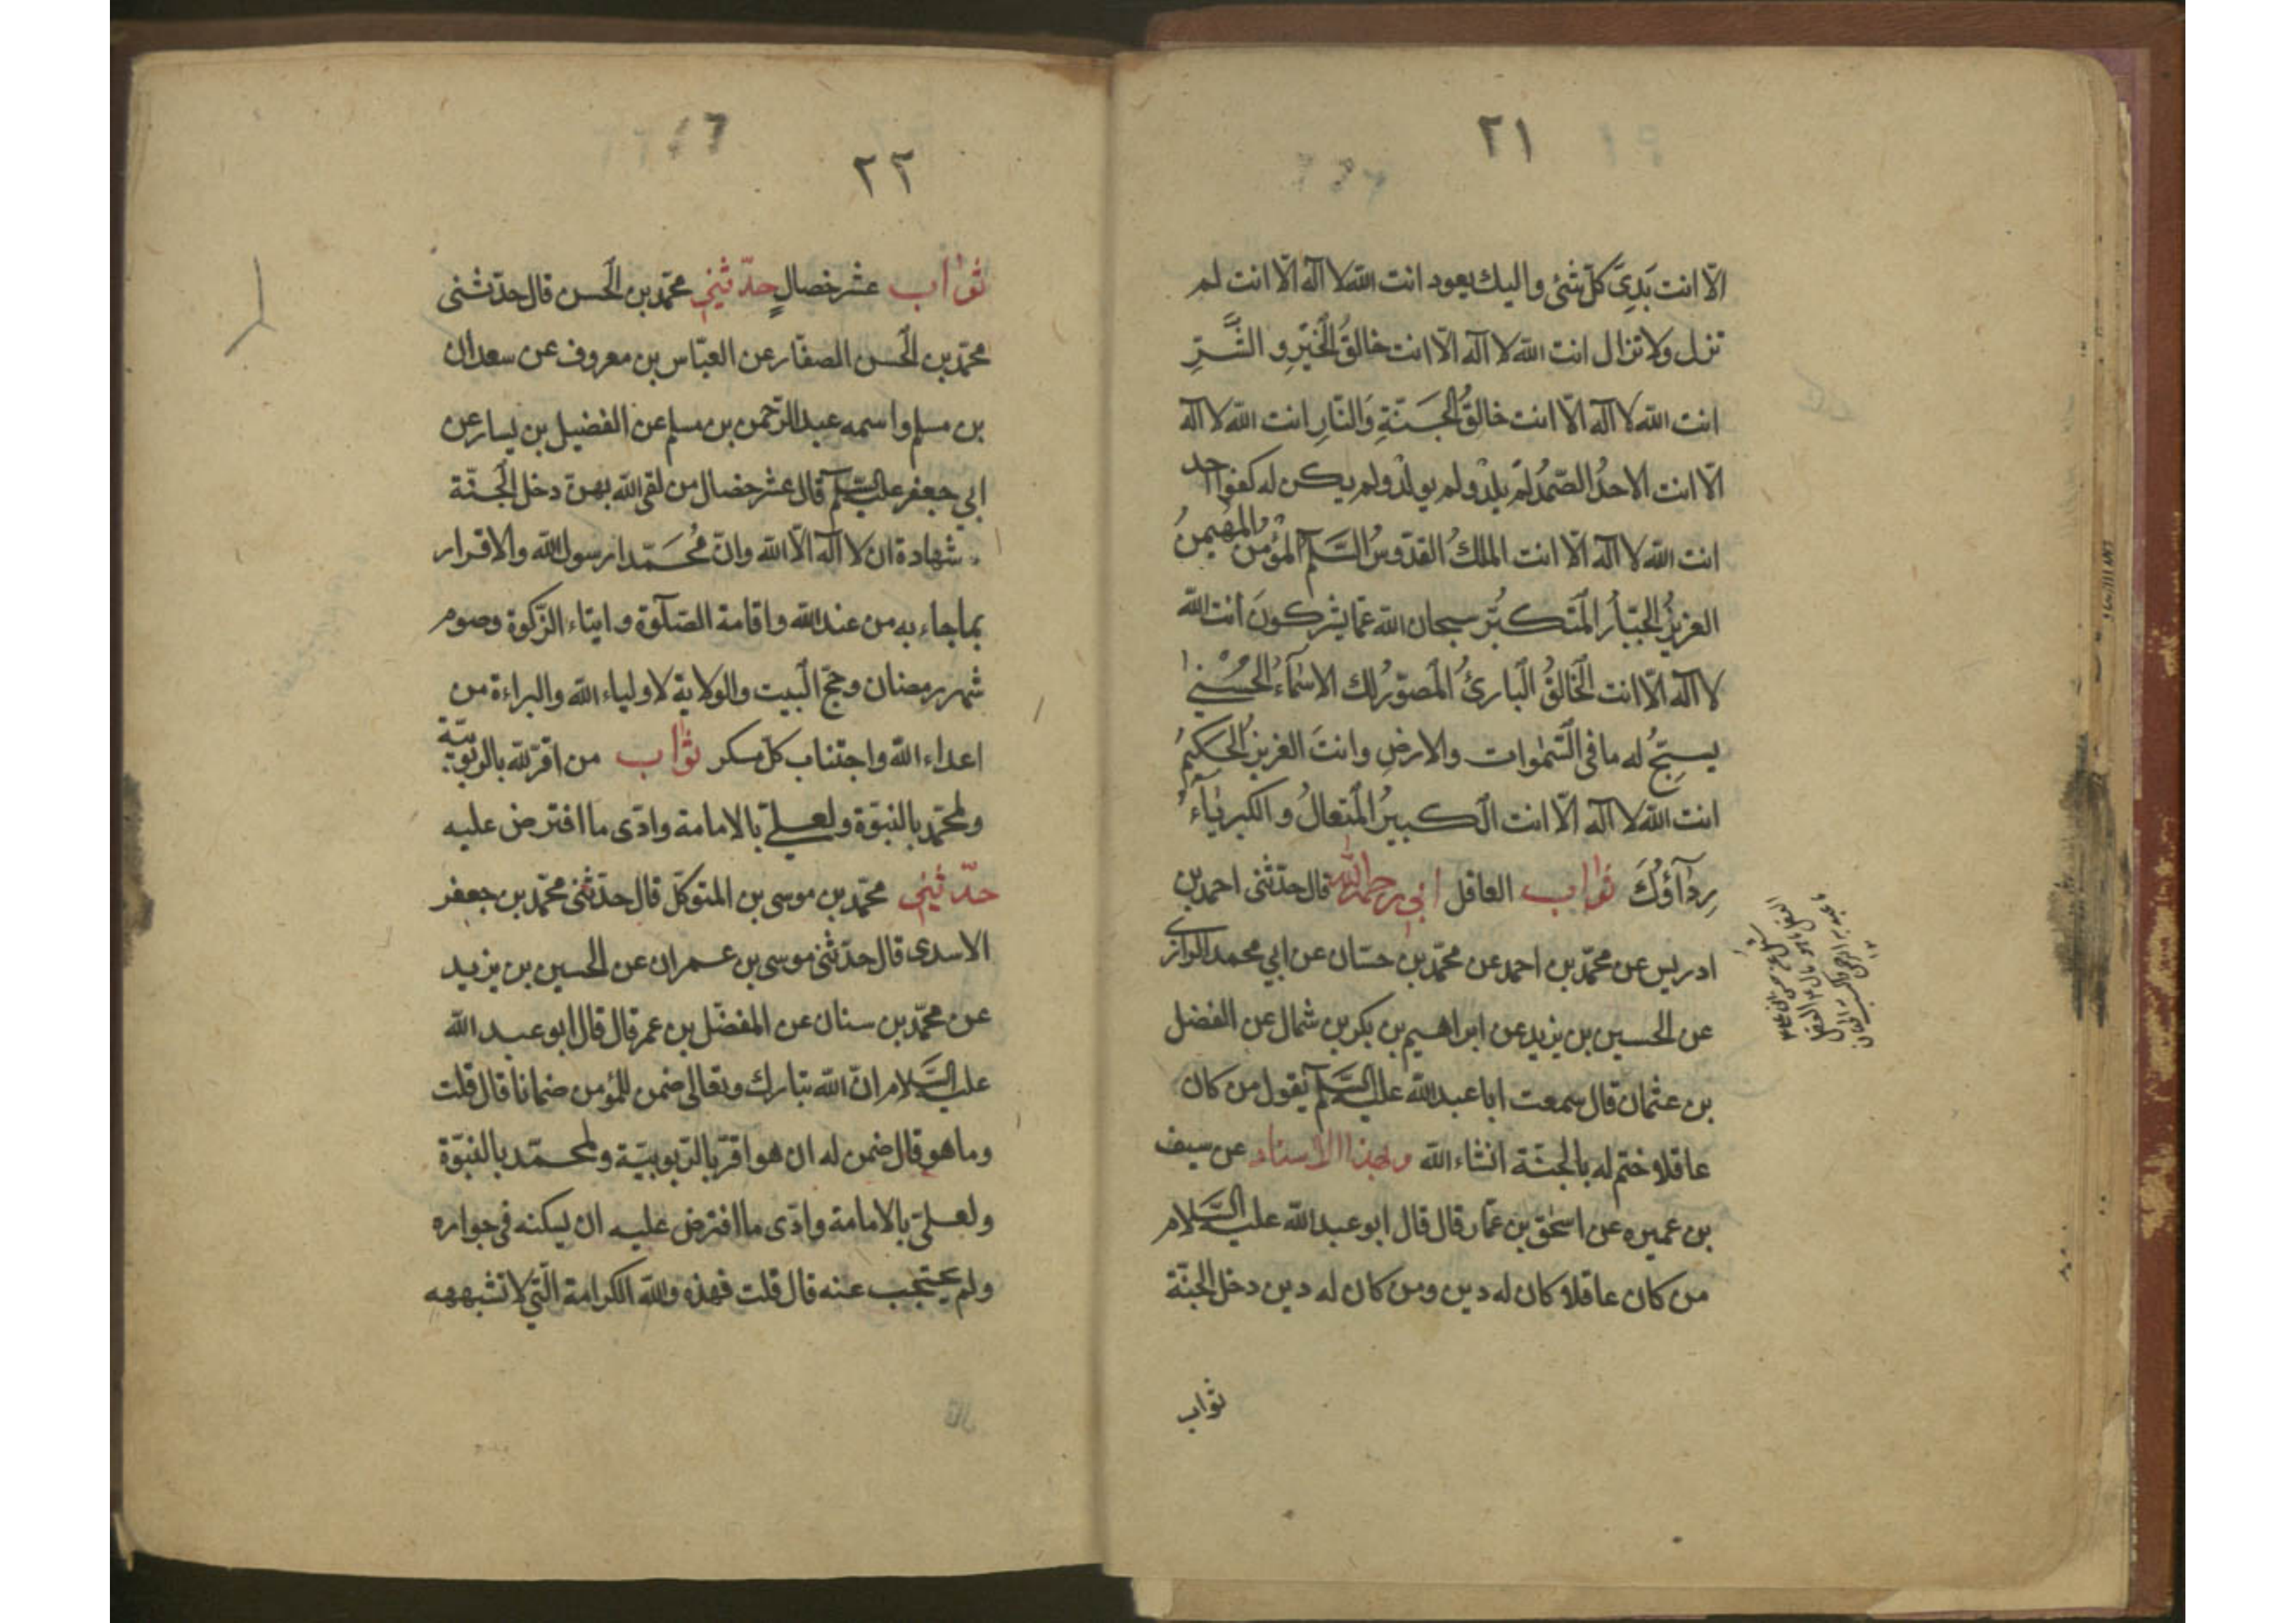 ٢١
الّا انت بَدِیَّ كلّ شئ واليك يعود انت الله لا آله الّا انت لم
تزل ولا تزال انت الله لا آله الّا انت خالقُ الخَيْرِ و الشَّرِّ
انت الله لا آله الّا انت خالقُ الجَنّةِ وَالنّارِ انت الله لا آله
الّا انت الاحدُ الصّمدُ لَمْ يلِدْ ولم يولَدْ ولم يكن له كفوا احد
انت الله لا آله الّا انت الملكُ القدّوسُ السَّلٰم المؤمنُ المهيمنُ
العزيزُ الجبّارُ المتكبّر سبحان الله عمّا يشركونَ انت الله
لا آله الّا انت الخَالقُ البارئُ المصوّرُ لك الاسماءُ الحُسْنىٰ
يسبّحُ له ما فى السّمٰوات والارضِ وانتَ العزيزُ الحَكيمُ
انت الله لا آله الّا انت الكبيرُ المتعالُ و الكبرياۤءُ
رِدآؤُكَ ثواب العاقل ابي رحمه الله قال حدّثنى احمد بن
ادريس عن محمّد بن احمد عن محمّد بن حسّان عن ابي محمد الرازى
عن الحسين بن يزيد عن ابراهيم بن بكر بن شمال عن الفضل
بن عثمان قال سمعت ابا عبد الله عليه السّلٰم يقول من كان
عاقلا ختم له بالجنّة انشاء الله وبهذا الاسناد عن سيف
بن عميره عن اسحٰق بن عمّار قال قال ابو عبد الله عليه السّلام
من كان عاقلا كان له دين ومن كان له دين دخل الجنّة
ثواب
٢٢
ثواب عشر خصالٍ حدّثني محمّد بن الحسن قال حدّثنى
محمّد بن الحسن الصفّار عن العبّاس بن معروف عن سعدان
بن مسلم واسمه عبد الرّحمن بن مسلم عن الفضيل بن يسار عن
ابي جعفر عليه السّلٰم قال عشر خصال من لقى الله بهنّ دخل الجنّة
شهادة ان لا آله الّا الله وانّ مُحَمّدا رسول الله والاقرار
بما جاء به من عند الله واقامة الصّلٰوة وايتاء الزّكوة وصوم
شهر رمضان وحجّ البيت والولاية لاولياء الله والبراءة من
اعداء الله واجتناب كلّ مسكر ثواب من اقرّ لله بالربوبيّة
ولمحمّد بالنبوّة ولعليّ بالامامة وادّى ما افترض عليه
حدّثني محمّد بن موسى بن المتوكّل قال حدّثنى محمّد بن جعفر
الاسدى قال حدّثنى موسى بن عمران عن الحسين بن يزيد
عن محمّد بن سنان عن المفضّل بن عمر قال قال ابو عبد الله
عليه السّلام انّ الله تبارك وتعالى ضمن للمؤمن ضمانا قال قلت
وما هو قال ضمن له ان هو اقرّ بالرّبوبيّة ولمحمّد بالنبوّة
ولعليّ بالامامة وادّى ما افترض عليه ان يسكنه فى جواره
ولم يحتجب عنه قال قلت فهذه والله الكرامة الّتي لا تشبهه